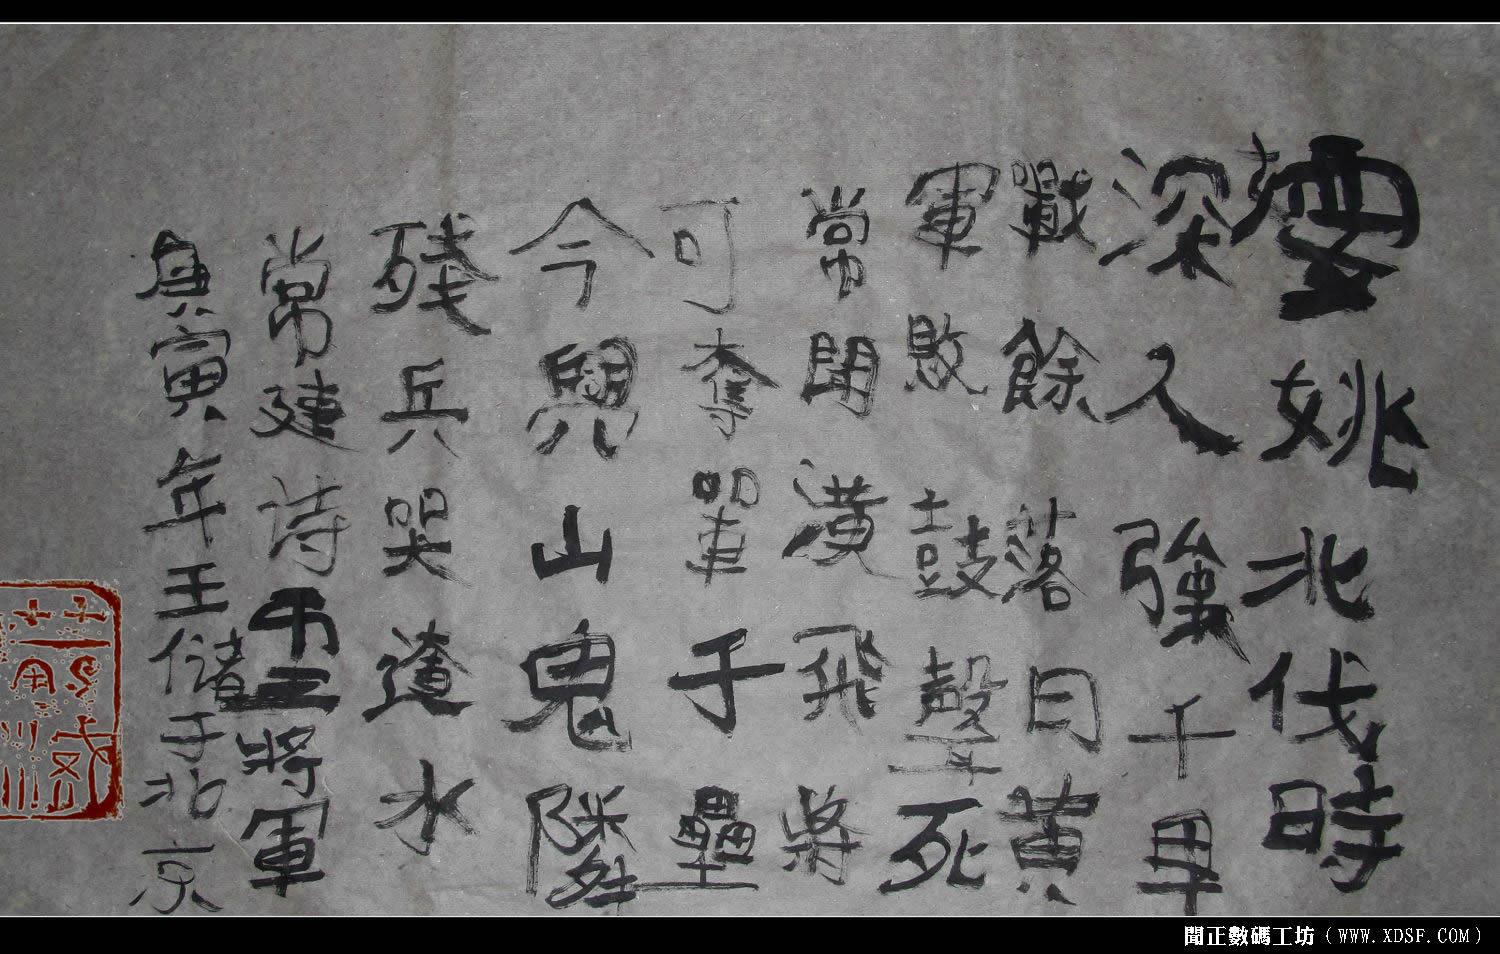 嫖姚北伐時
深入強千里
戰餘落日黃
軍敗鼓聲死
常聞漢飛將
可奪單于壘
今與山鬼隣
殘兵哭遼水
常建诗弔王將軍
庚寅年王儲于北京
聞正數碼工坊（WWW.XDSF.COM）